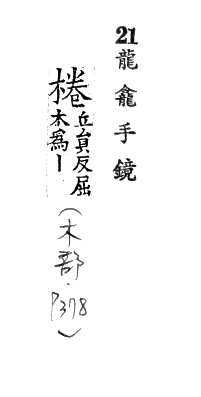 21龍龕手鏡
棬丘員反屈
木為丨
(木部.P378)